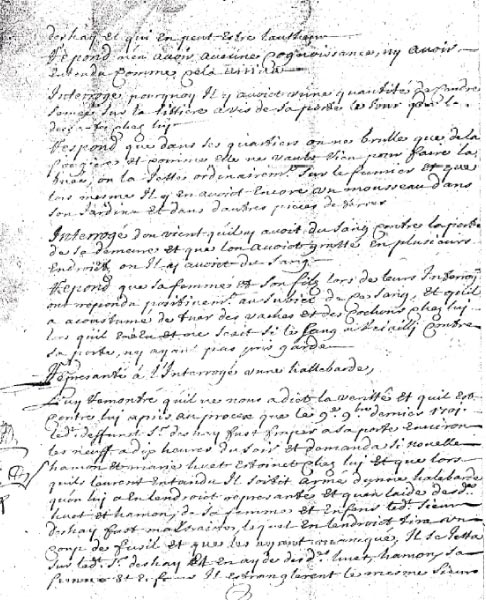 deshay et qui en peut estre lautheur
Repond n'en avoir aucune cognoissance, ny avoir
entendu comme cela
Interrogé pourquoy Il y avoit une quantité de cendre
sur la littiere a vis de sa porte le jour
chez luy
Respond que dans ses quartiers on ne brulle que de la
et pomme elle ne vault rien pour faire la
buée, on la jette ordinairement sur le fumier et que
lors mesme Il y en avoit encore un mousseau dans
son Jardin et dans dautres pieces de terres
Interrogé don vient quil y avoit du sang contre la porte
de sa demeure et que lon avoit gratté en plusieurs
endroits ou Il y avoit du sang
Repond que sa femme et son fils lors de leurs Interroy
ont repondu pertinement au subiet de ce sang, et quil
a acoustumé de tuer des vaches et des cochons chez luy
lors quil et ne scait si le sang a rejailli contre
sa porte, ny ayant pas pris garde
Representé a l'Interrogé une hallebarde,
Luy remontré quil ne nous a dict la verité et quil est
contre lui apris au procex que le 9e 9bre dernier 1701
led. deffunt Sr. deshay fust a sa porte environ
les neuff a dix heures du soir et demanda si nouelle
hamon et marie huet estoient chez lui et que lors
quils leurent entendu Il sortit armé dynne halebarde
quon lui a en lendroit representé et quon laide desd.
huet et hamon, de sa femme et enfens led. sieur
deshay fust massacré, lequel en lendroit tira un
coup de fusil et que les ayant manqué, Il se jetta
sur led. Sr. deshay et en ayde desd. huet, hamon, sa
femme et enfens Il estranglerent le mesme sieur